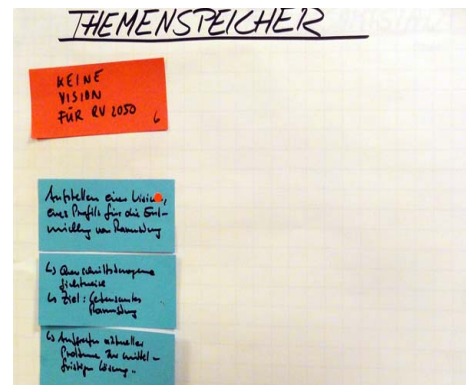 THEMENSPEICHER
KEINE
VISION
FÜR RV 2050
6
Aufstellen einer Vision,
eines Profils für die Ent-
wicklung von Raumordnung
↳ Querschnittsbezogene
Sichtweise
↳ Ziel:
↳ Aufgreifen aktueller
Probleme zur mittel-
fristigen Lösung..